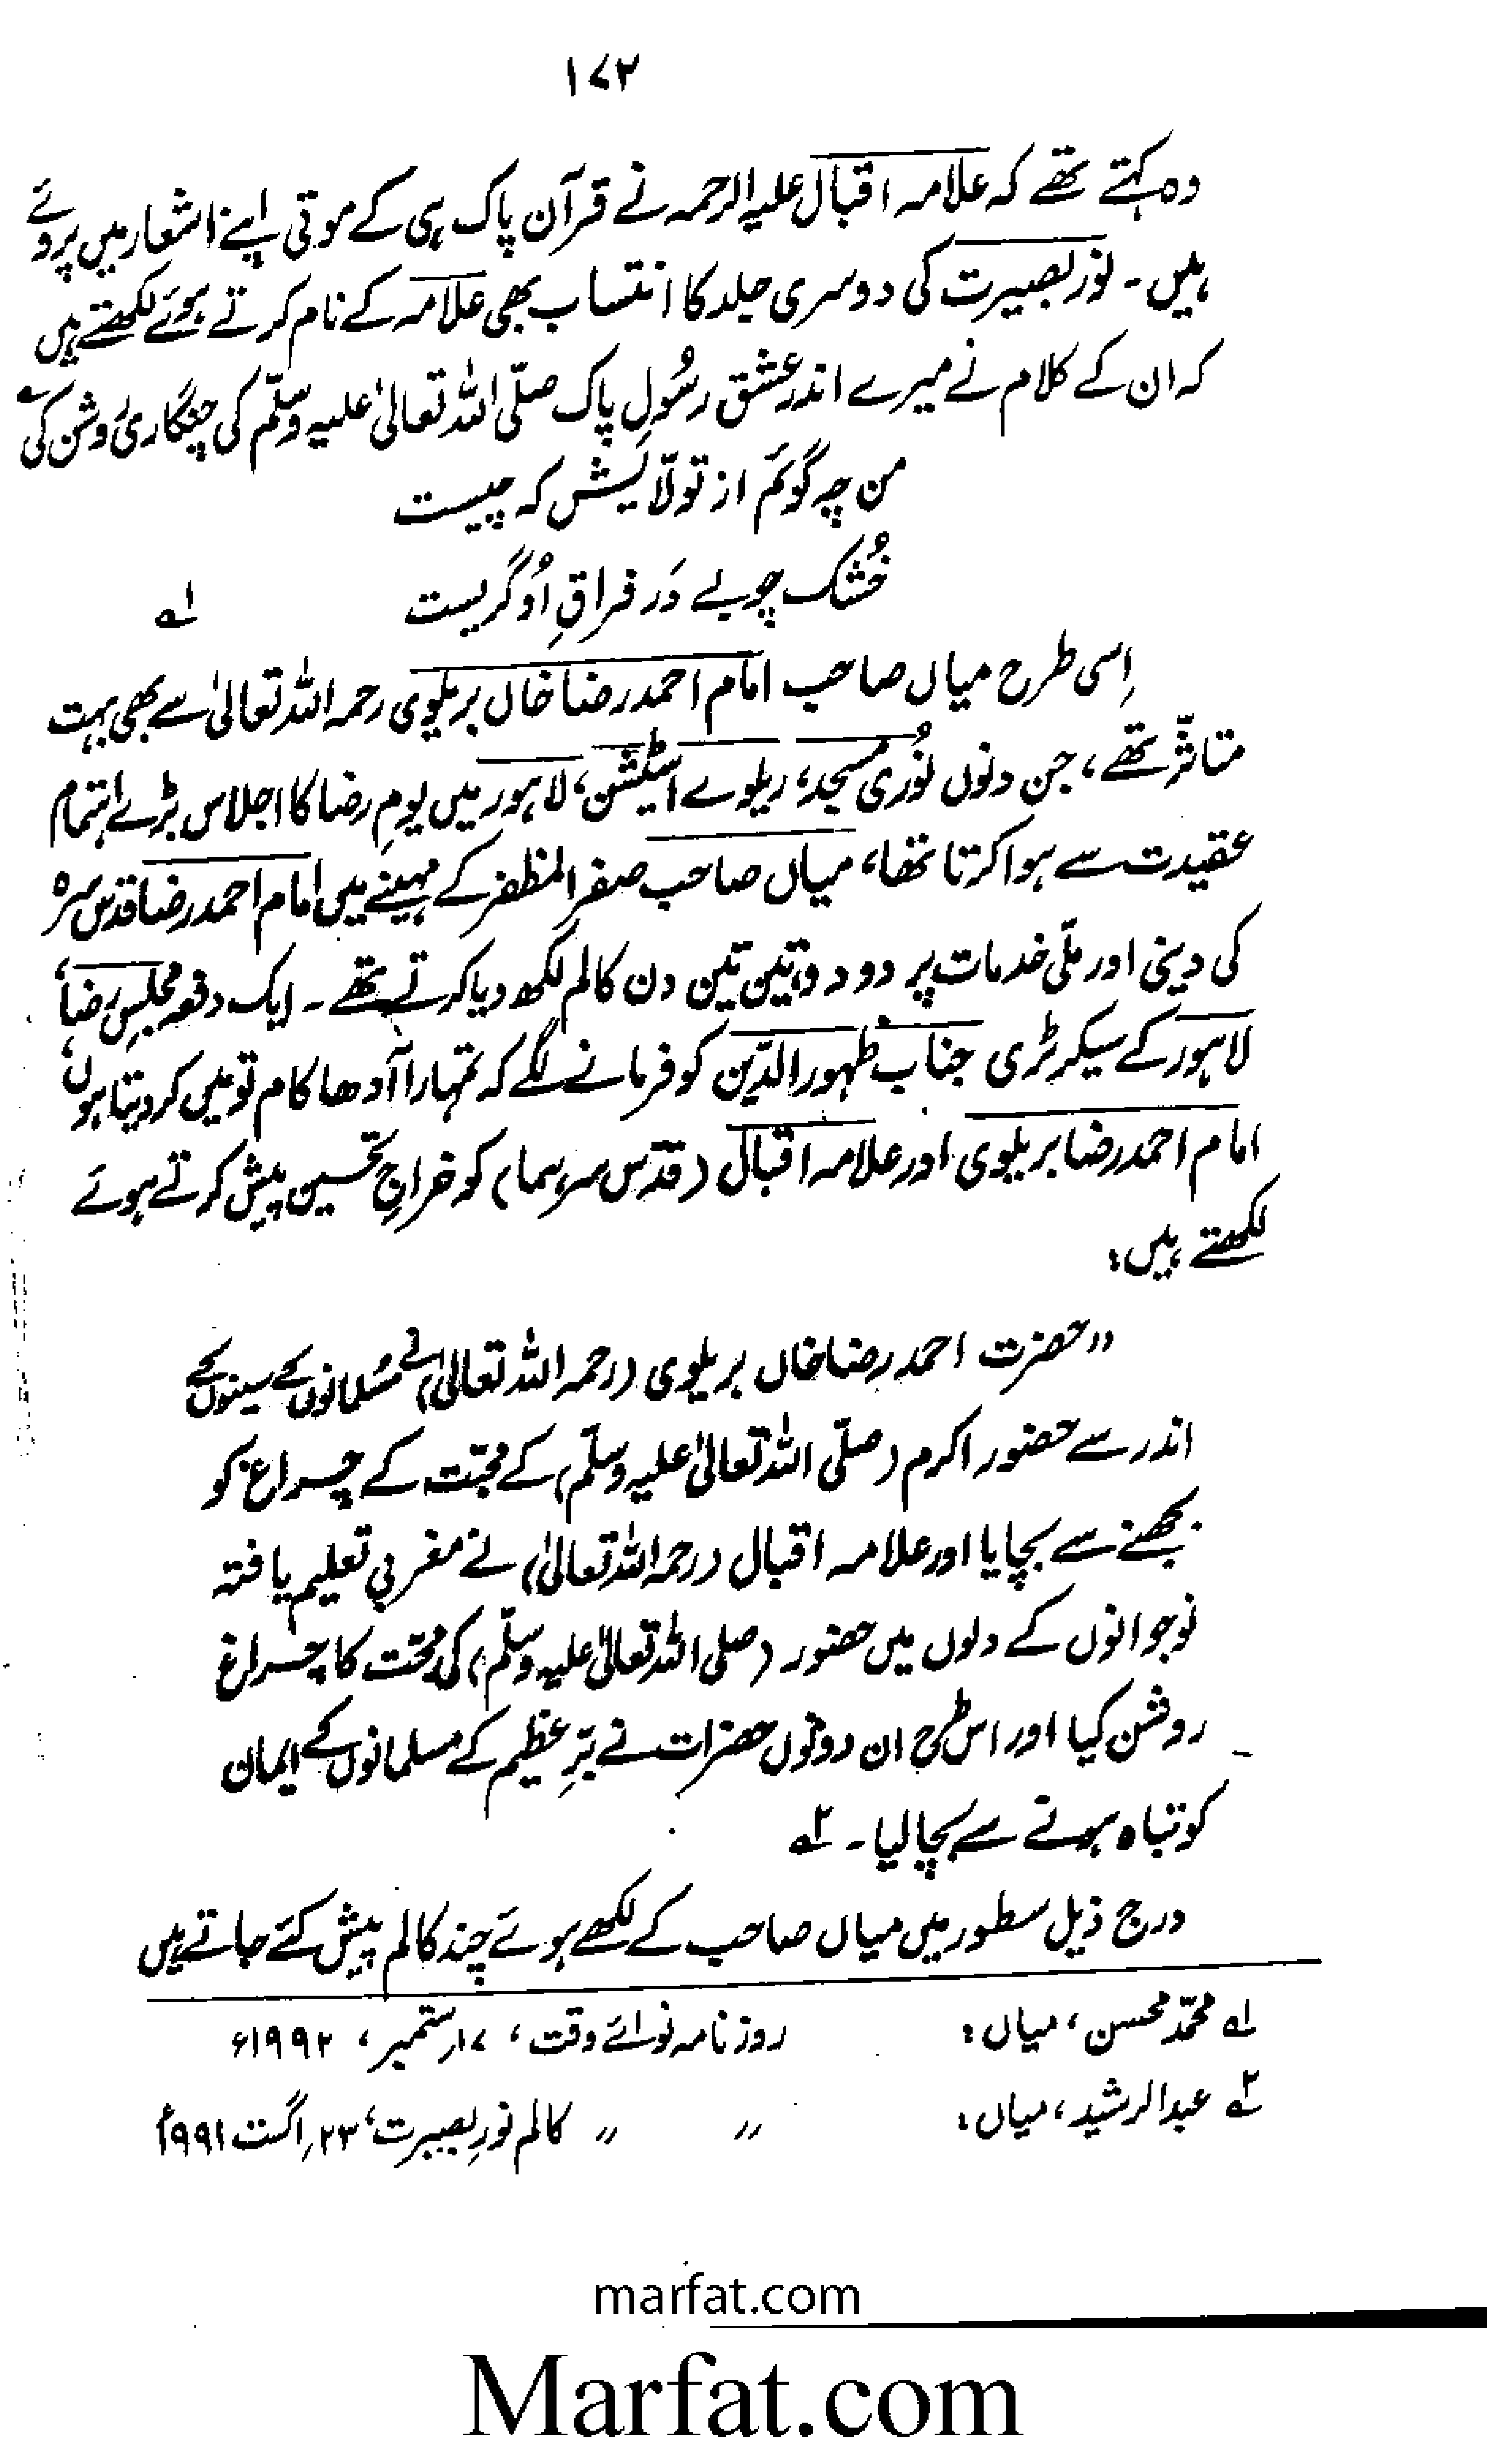 ۱۷۲
وہ کہتے تھے کہ علامہ اقبال علیہ الرحمہ نے قرآن پاک ہی کے موتی اپنے اشعار میں پروئے
ہیں۔ نورِ بصیرت کی دوسری جلد کا انتساب بھی علامہ کے نام کرتے ہوئے لکھتے ہیں
کہ ان کے کلام نے میرے اندر عشق رسُولِ پاک صلّی اللہ تعالیٰ علیہ وسلّم کی چنگاری روشن کی ؎
من چہ گوئم از تولّایَش کہ چیست
خُشک چوبے دَر فراقِ اُو گریست ؂۱
اِسی طرح میاں صاحب امام احمد رضا خاں بریلوی رحمہ اللہ تعالیٰ سے بھی بہت
متاثّر تھے، جن دنوں نُوری مسجد، ریلوے اسٹیشن، لاہور میں یومِ رضا کا اجلاس بڑے اہتمام
عقیدت سے ہوا کرتا تھا، میاں صاحب صفر المظفر کے مہینے میں امام احمد رضا قدس سرہ
کی دینی اور ملّی خدمات پر دو دو، تین تین دن کالم لکھ دیا کرتے تھے۔ ایک دفعہ مجلسِ رضا،
لاہور کے سیکرٹری جناب ظہور الدّین کو فرمانے لگے کہ تمہارا آدھا کام تو میں کر دیتا ہوں،
امام احمد رضا بریلوی اور علامہ اقبال (قدّس سرہما) کو خراجِ تحسین پیش کرتے ہوئے
لکھتے ہیں:
"حضرت احمد رضا خاں بریلوی (رحمہ اللہ تعالیٰ) نے مُسلمانوں کے سینوں کے
اندر سے حضور اکرم (صلّی اللہ تعالیٰ علیہ وسلّم) کے محبّت کے چراغ کو
بجھنے سے بچایا اور علامہ اقبال (رحمہ اللہ تعالیٰ) نے مغربی تعلیم یافتہ
نوجوانوں کے دلوں میں حضور (صلی اللہ تعالیٰ علیہ وسلّم) کی محبّت کا چراغ
روشن کیا اور اس طرح ان دونوں حضرات نے برِّ عظیم کے مسلمانوں کے ایمان
کو تباہ ہونے سے بچا لیا۔ ؂۲
درج ذیل سطور میں میاں صاحب کے لکھے ہوئے چند کالم پیش کئے جاتے ہیں
؂۱ محمّد محسن، میاں: روزنامہ نوائے وقت، ۱۷ر ستمبر، ۱۹۹۲ء
؂۲ عبدالرشید، میاں: " " کالم نورِ بصیرت، ۲۳ر اگست ۱۹۹۱ء
marfat.com
Marfat.com